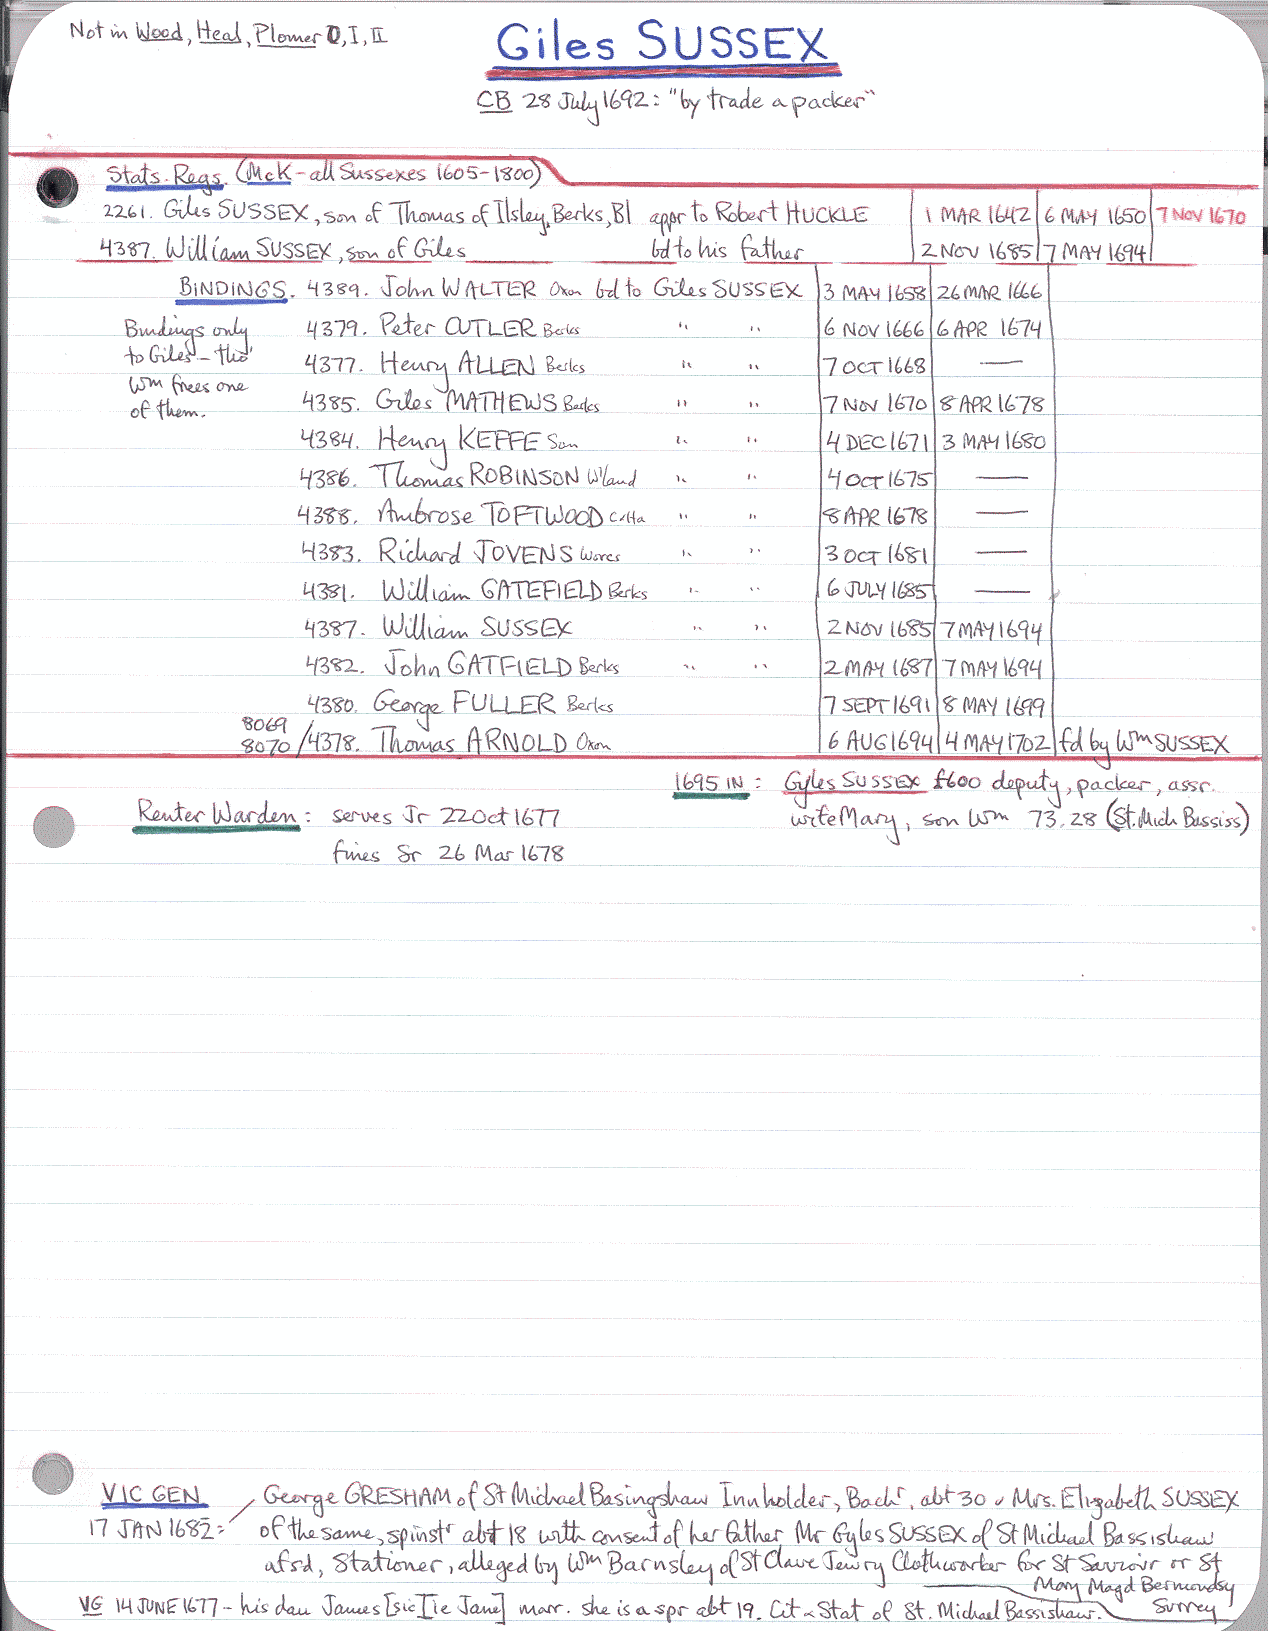 Not in Wood, Heal, Plomer O, I, II
Giles SUSSEX
CB 28 July 1692: "by trade a packer"
Stats. Regs. (McK - all Sussexes 1605-1800)
2261. Giles SUSSEX, son of Thomas of Ilsley, Berks, Bl appr to Robert HUCKLE 1 MAR 1642 6 MAY 1650 7 NOV 1670
4387. William SUSSEX, son of Giles bd to his father 2 NOV 1685 7 MAY 1694
BINDINGS. 4389. John WALTER Oxon bd to Giles SUSSEX 3 MAY 1658 26 MAR 1666
Bindings only 4379. Peter CUTLER Berks " " 6 NOV 1666 6 APR 1674
to Giles - tho' 4377. Henry ALLEN Berks " " 7 OCT 1668 —
Wm frees one 4385. Giles MATHEWS Berks " " 7 NOV 1670 8 APR 1678
of them. 4384. Henry KEFFE Son " " 4 DEC 1671 3 MAY 1680
4386. Thomas ROBINSON W'land " " 4 OCT 1675 —
4388. Ambrose TOFTWOOD " " 8 APR 1678 —
4383. Richard JOVENS Worcs " " 3 OCT 1681 —
4381. William GATEFIELD Berks " " 6 JULY 1685 —
4387. William SUSSEX " " 2 NOV 1685 7 MAY 1694
4382. John GATFIELD Berks " " 2 MAY 1687 7 MAY 1694
4380. George FULLER Berks 7 SEPT 1691 8 MAY 1699
8069
8070 /4378. Thomas ARNOLD Oxon 6 AUG 1694 4 MAY 1702 fd by Wm SUSSEX
1695 IN: Gyles SUSSEX £600 deputy, packer, assr.
Renter Warden: serves Jr 22 Oct 1677 wife Mary, son Wm 73.28 (St. Mich Bassiss)
fines Sr 26 Mar 1678
VIC GEN George GRESHAM of St Michael Basingshaw Innholder, Bachr, abt 30 & Mrs. Elizabeth SUSSEX
17 JAN 1682: of the same, spinstr abt 18 with consent of her father Mr Gyles SUSSEX of St Michael Bassishaw
afsd, Stationer, alleged by Wm Barnsley of St Olave Jewry Clothworker for St Saviour or St
Mary Magd Bermondsy
Surrey
VG 14 JUNE 1677 - his dau James [sic][ie Jane] marr. She is a spr abt 19. Cit & Stat of St. Michael Bassishaw.